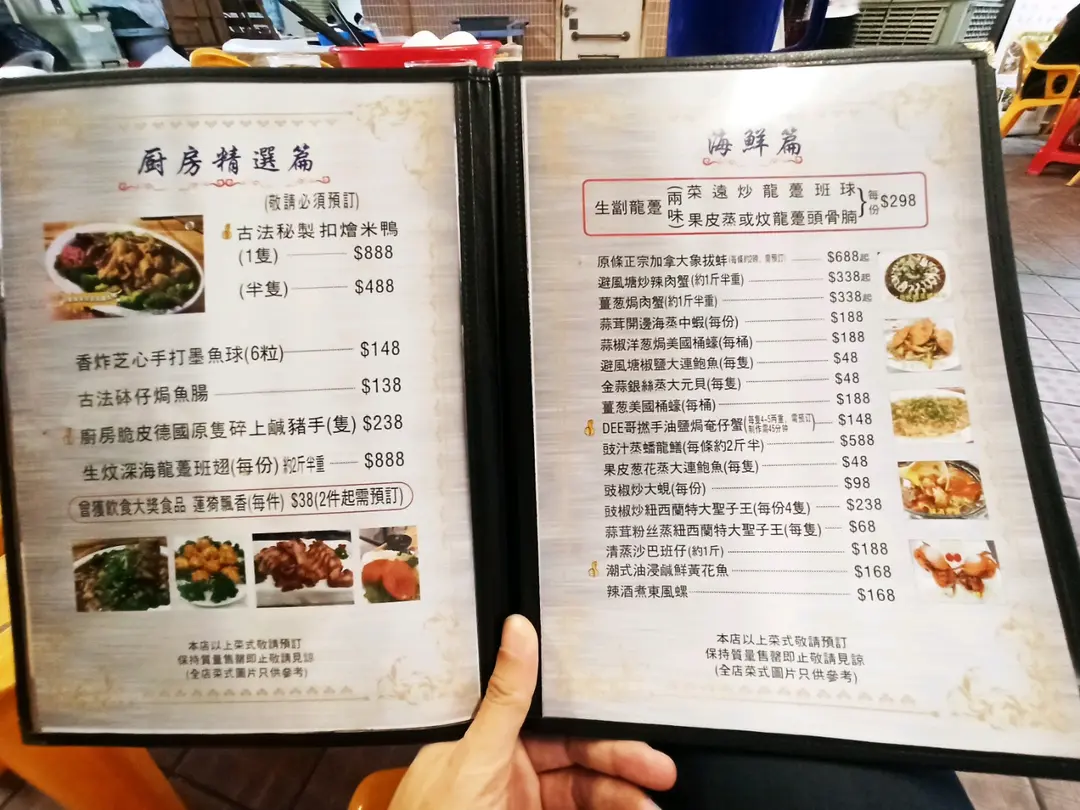 厨房精選篇
(敬請必須預訂)
古法秘製扣燴米鴨
(1隻) $888
(半隻) $488
香炸芝心手打墨魚球(6粒) $148
古法砵仔焗魚腸 $138
厨房脆皮德國原隻碎上鹹豬手(隻) $238
生炆深海龍躉班翅(每份) 約2斤半重 $888
曾獲飲食大獎食品 蓮猗飄香(每件) $38(2件起需預訂)
本店以上菜式敬請預訂
保持質量售罄即止敬請見諒
(全店菜式圖片只供參考)
海鮮篇
生劏龍躉(兩味) 菜遠炒龍躉班球 果皮蒸或炆龍躉頭骨腩 每份 $298
原條正宗加拿大象拔蚌 $688起
避風塘炒辣肉蟹(約1斤半重) $338起
薑葱焗肉蟹(約1斤半重) $338起
蒜茸開邊海蒸中蝦(每份) $188
蒜椒洋葱焗美國桶蠔(每桶) $188
避風塘椒鹽大連鮑魚(每隻) $48
金蒜銀絲蒸大元貝(每隻) $48
薑葱美國桶蠔(每桶) $188
DEE哥撚手油鹽焗奄仔蟹(每隻4-5両重，需預訂 制作需45分钟) $148
豉汁蒸蟠龍鱔(每條約2斤半) $588
果皮葱花蒸大連鮑魚(每隻) $48
豉椒炒大蜆(每份) $98
豉椒炒紐西蘭特大聖子王(每份4隻) $238
蒜茸粉丝蒸紐西蘭特大聖子王(每隻) $68
清蒸沙巴班仔(約1斤) $188
潮式油浸鹹鮮黃花魚 $168
辣酒煮東風螺 $168
本店以上菜式敬請預訂
保持質量售罄即止敬請見諒
(全店菜式圖片只供參考)